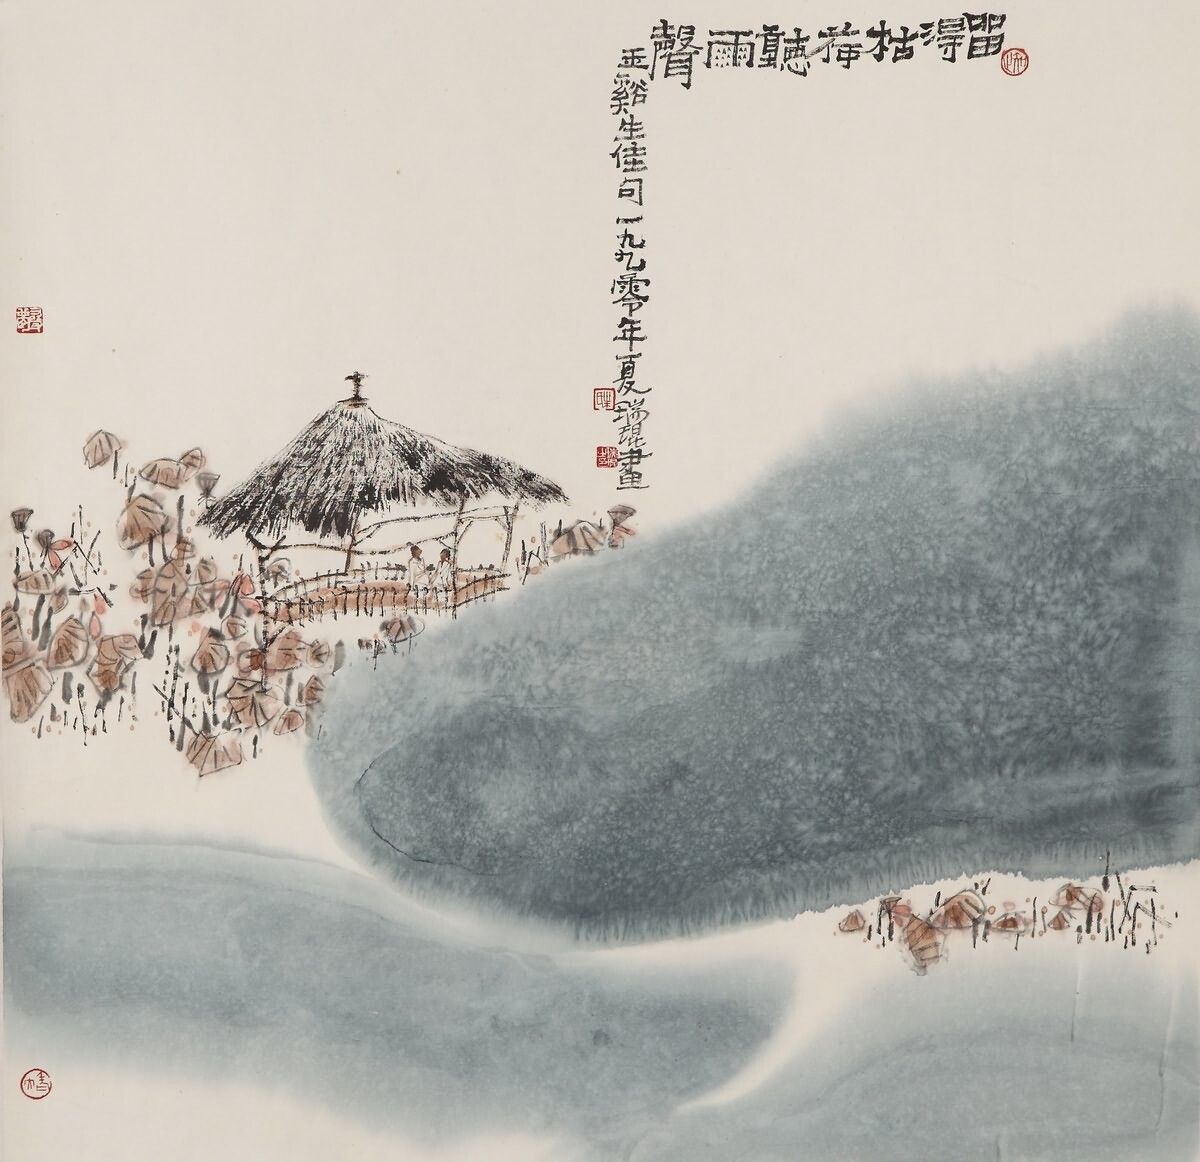 留得枯荷聽雨聲
玉谿生佳句一九九零年夏瑞琨畫